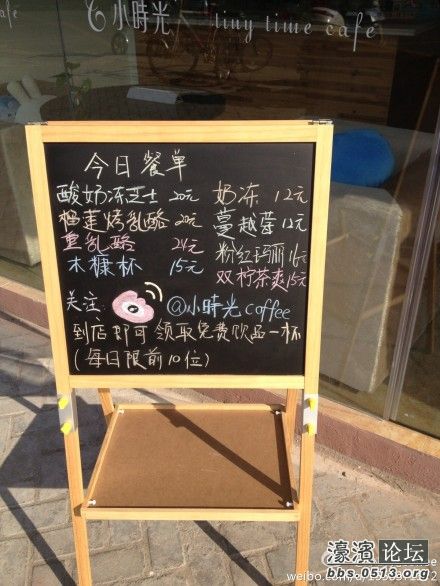 小時光 tiny time cafe
今日餐单
酸奶冻芝士 20元 奶冻 12元
榴莲烤乳酪 20元 蔓越莓 12元
重乳酪 24元 粉红玛丽 16元
木糠杯 15元 双柠茶爽 15元
关注: @小時光coffee
到店即可领取免费饮品一杯
(每日限前10位)
濠滨论坛
bbs.0513.org